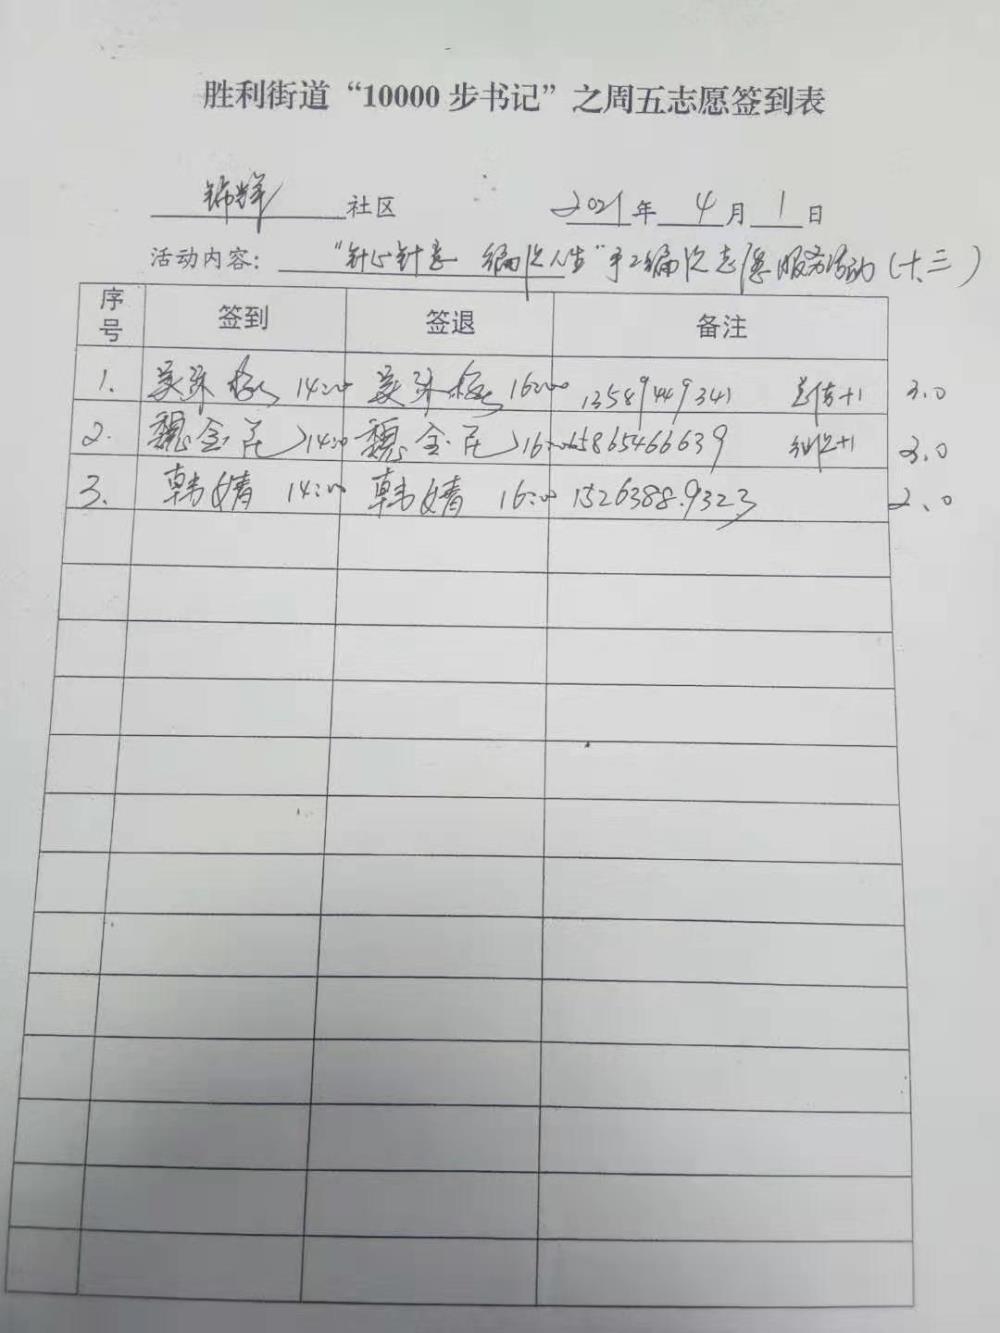 胜利街道“10000步书记”之周五志愿签到表
锦辉 社区 2021年 4月 1日
活动内容：“针心针意 编织人生”手工编织志愿服务活动（十三）
序号 签到 签退 备注
1. 14:00 16:00 13589449341 +1 3.0
2. 魏金 14:00 魏金 16:00 15865466639 +1 3.0
3. 韩婧 14:00 韩婧 16:00 15263889323 2.0